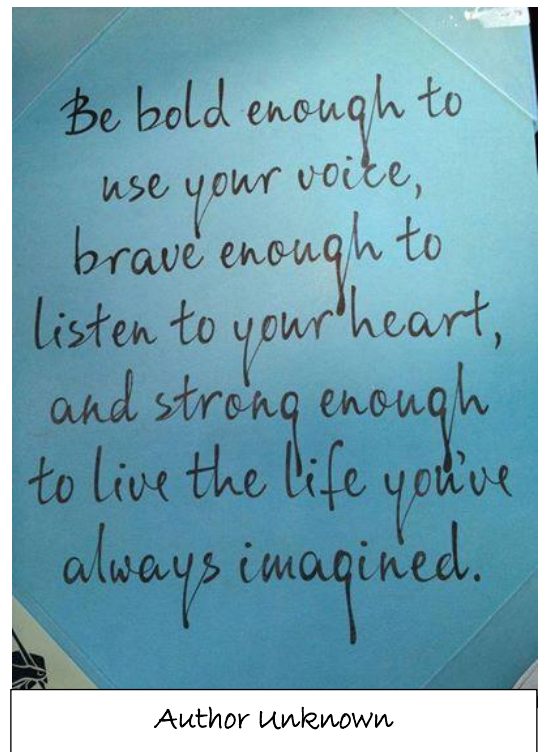 Be bold enough to
use your voice,
brave enough to
listen to your heart,
and strong enough
to live the life you've
always imagined.
Author Unknown